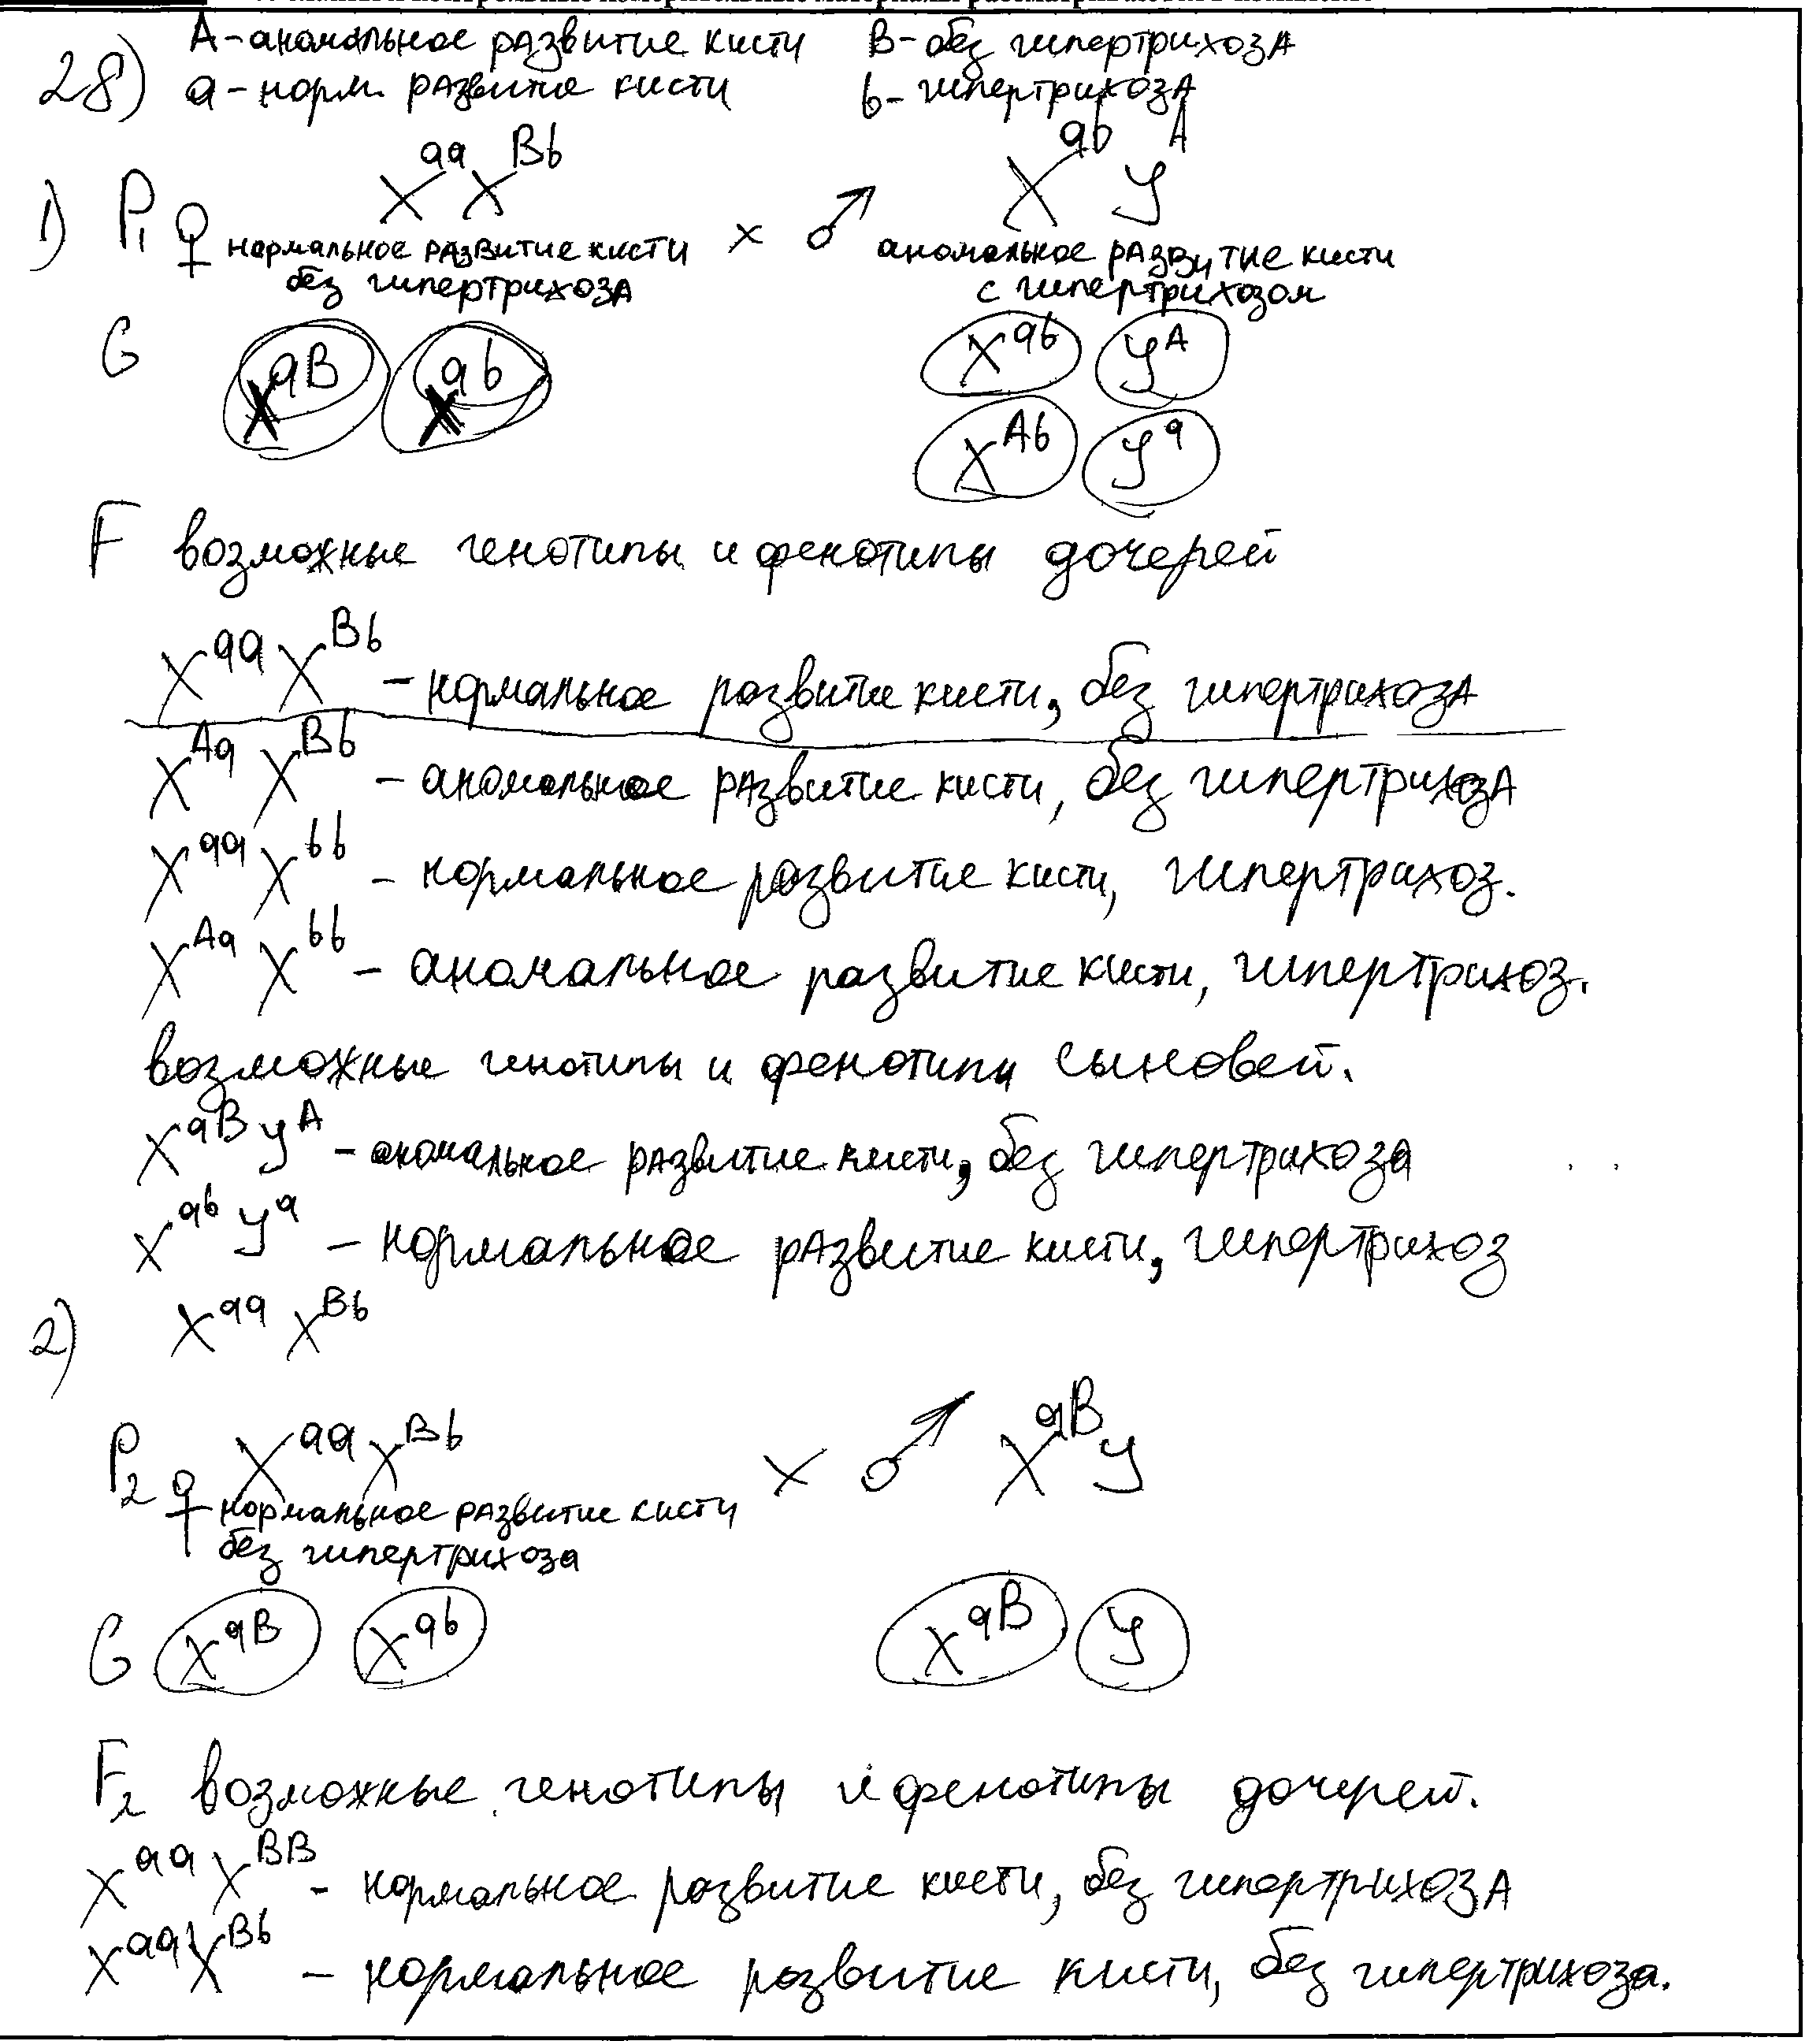 28) А - аномальное развитие кисти B - без гипертрихоза
а - норм. развитие кисти b - гипертрихоза
1) P₁ ♀ X^aa X^Bb × ♂ X^ab У^A
нормальное развитие кисти аномальное развитие кисти
без гипертрихоза с гипертрихозом
G X^aB X^ab X^ab У^A
X^Ab У^a
F возможные генотипы и фенотипы дочерей
X^aa X^Bb - нормальное развитие кисти, без гипертрихоза
X^Aa X^Bb - аномальное развитие кисти, без гипертрихоза
X^aa X^bb - нормальное развитие кисти, гипертрихоз.
X^Aa X^bb - аномальное развитие кисти, гипертрихоз.
возможные генотипы и фенотипы сыновей.
X^aB У^A - аномальное развитие кисти, без гипертрихоза
X^ab У^a - нормальное развитие кисти, гипертрихоз
2) X^aa X^Bb
P₂ ♀ X^aa X^Bb × ♂ X^aB У
нормальное развитие кисти
без гипертрихоза
G X^aB X^ab X^aB У
F₂ возможные генотипы и фенотипы дочерей.
X^aa X^BB - нормальное развитие кисти, без гипертрихоза
X^aa X^Bb - нормальное развитие кисти, без гипертрихоза.